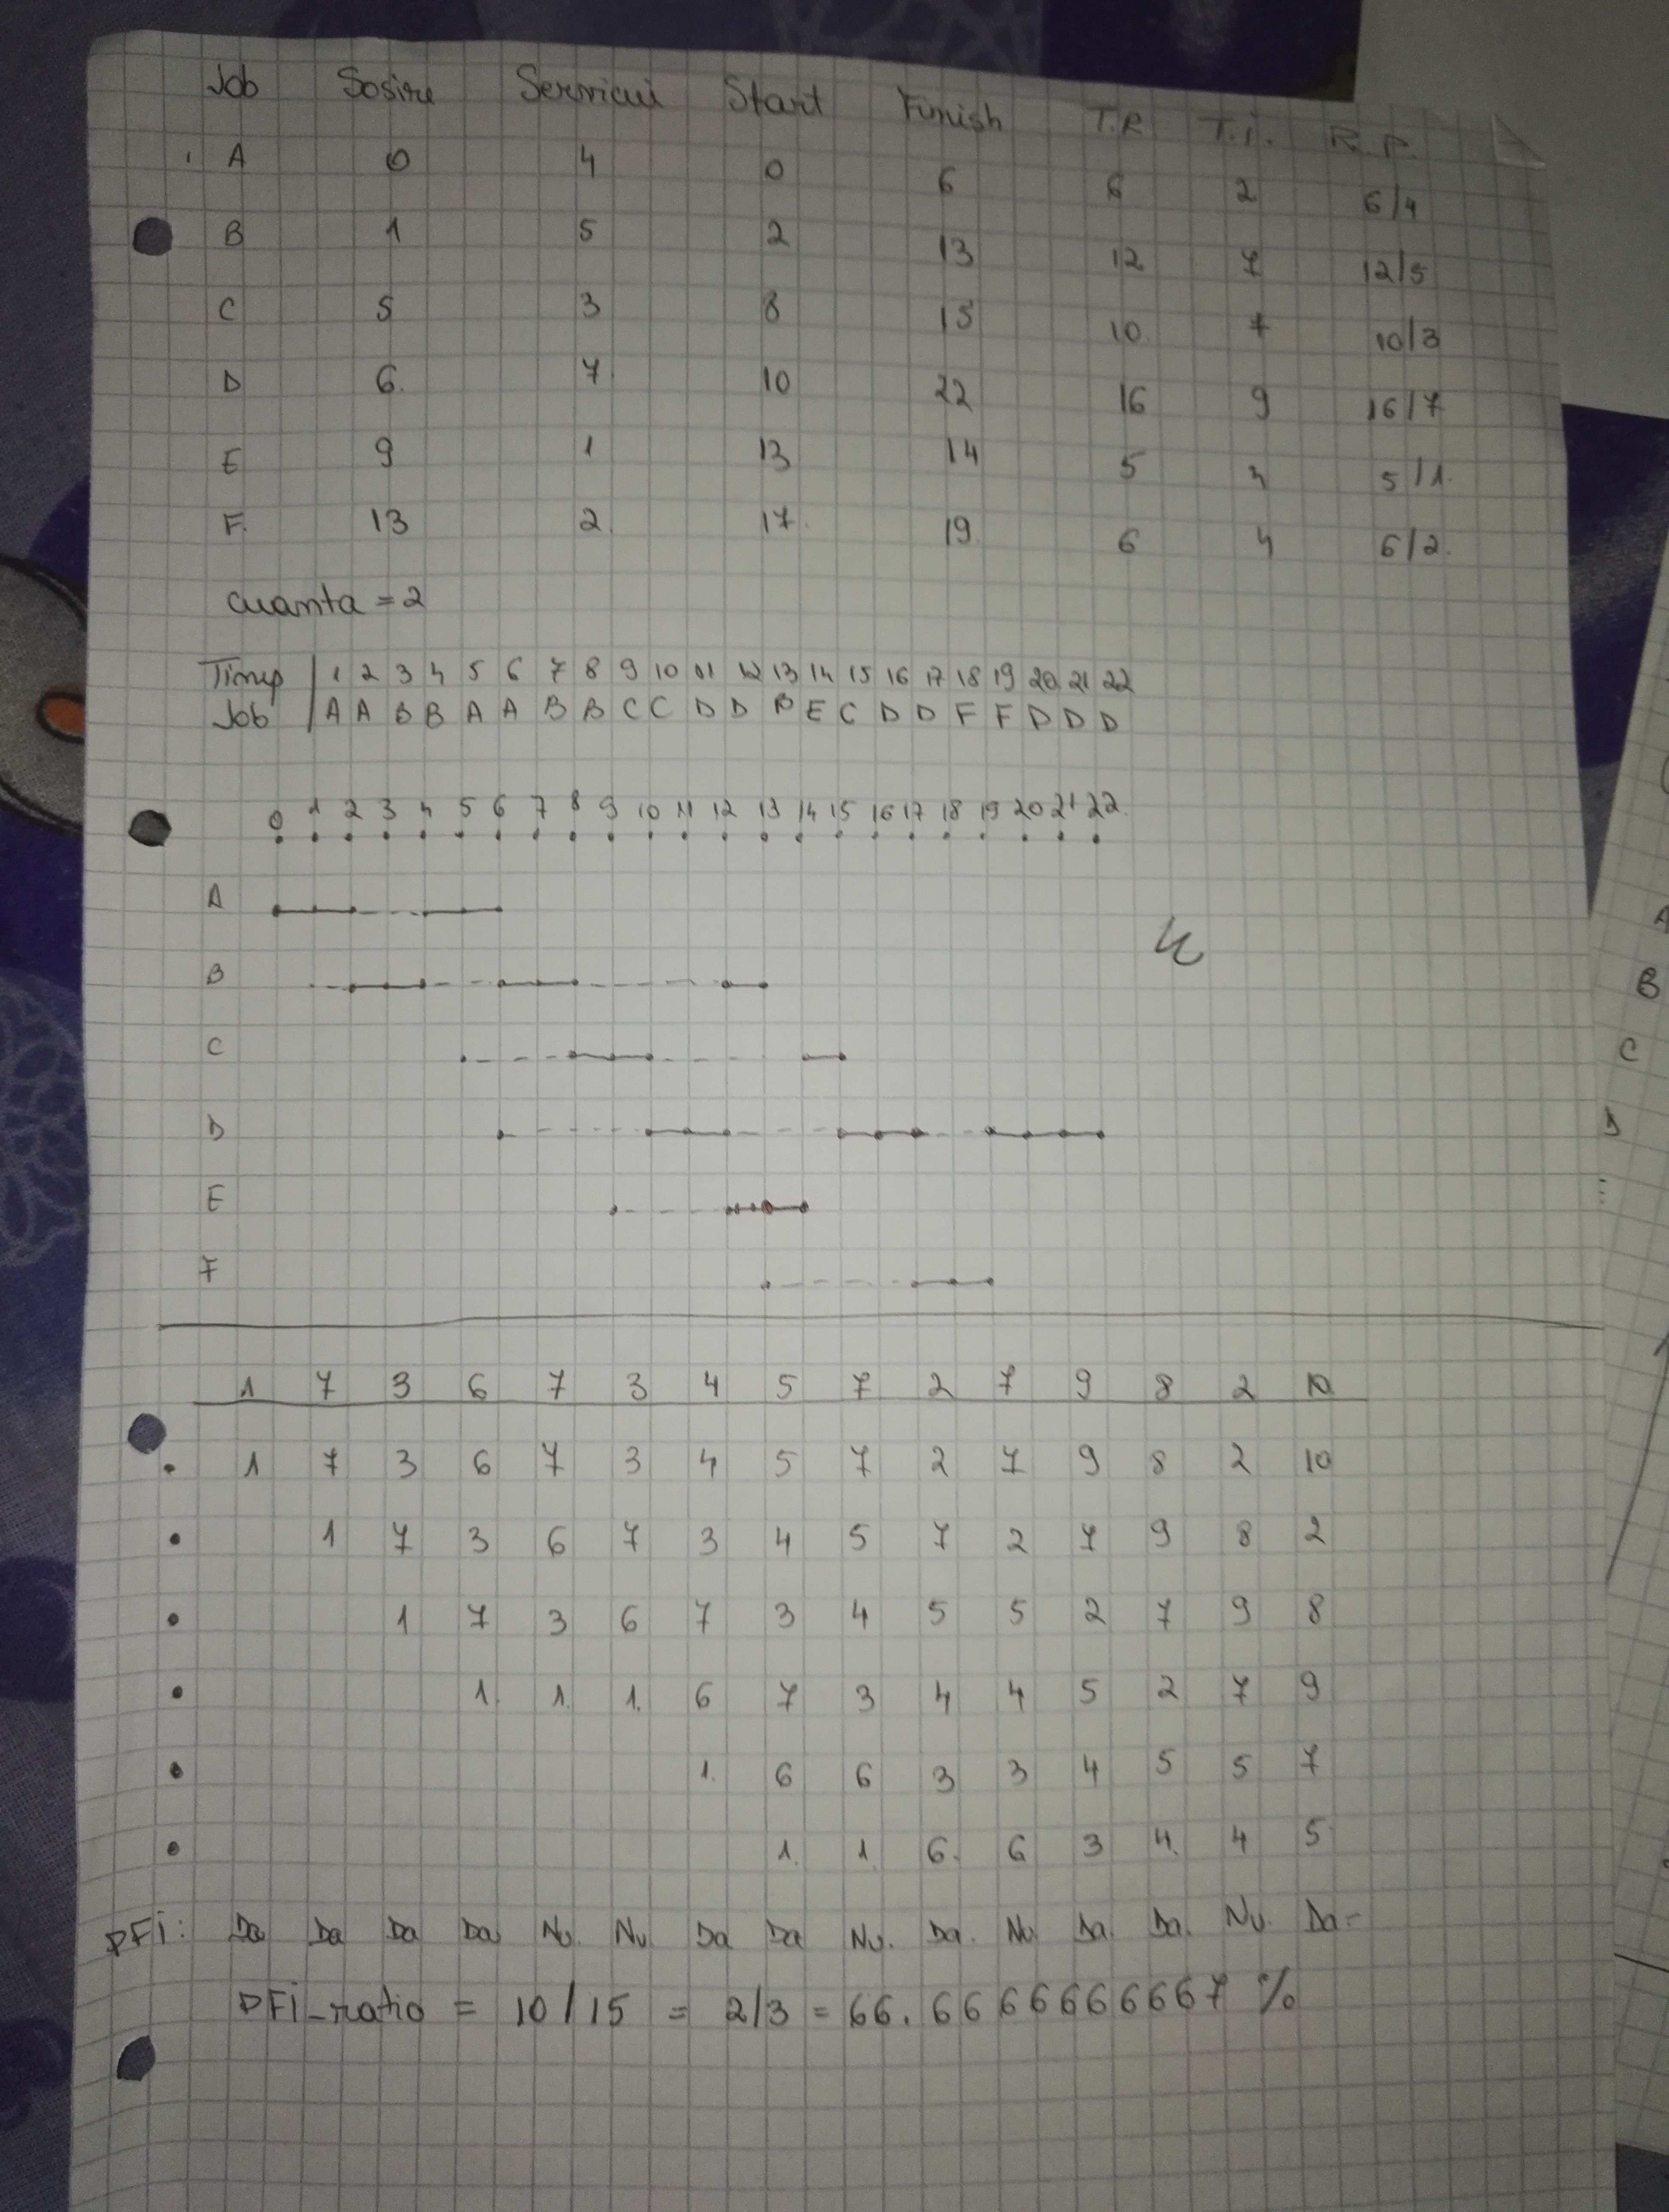 Job Sosire Serviciu Start Finish T.R T.i. R.P.
A 0 4 0 6 6 2 6/4
B 1 5 2 13 12 7 12/5
C 5 3 8 15 10 7 10/3
D 6. 7. 10 22 16 9 16/7
E 9 1 13 14 5 4 5/1.
F. 13 2. 17. 19. 6 4 6/2.
cuanta = 2
Timp 1 2 3 4 5 6 7 8 9 10 11 12 13 14 15 16 17 18 19 20 21 22
Job A A B B A A B B C C D D B E C D D F F D D D
0 1 2 3 4 5 6 7 8 9 10 11 12 13 14 15 16 17 18 19 20 21 22.
A
B
C
D
E
F
1 7 3 6 7 3 4 5 7 2 7 9 8 2 10
1 7 3 6 7 3 4 5 7 2 7 9 8 2 10
1 7 3 6 7 3 4 5 7 2 7 9 8 2
1 7 3 6 7 3 4 5 5 2 7 9 8
1. 1. 1. 6 7 3 4 4 5 2 7 9
1. 6 6 3 3 4 5 5 7
1. 1. 6. 6 3 4. 4 5
PFi: Da Da Da Da Nu. Nu Da Da Nu. Da. Nu. Da. Da. Nu. Da-
PFi-ratio = 10/15 = 2/3 = 66.6666666667 %
A
B
C
D